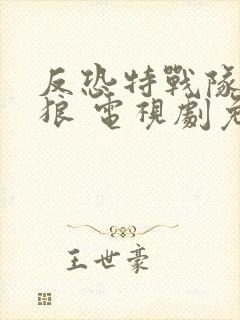 反恐特戰隊
狼 電視劇免
王世豪